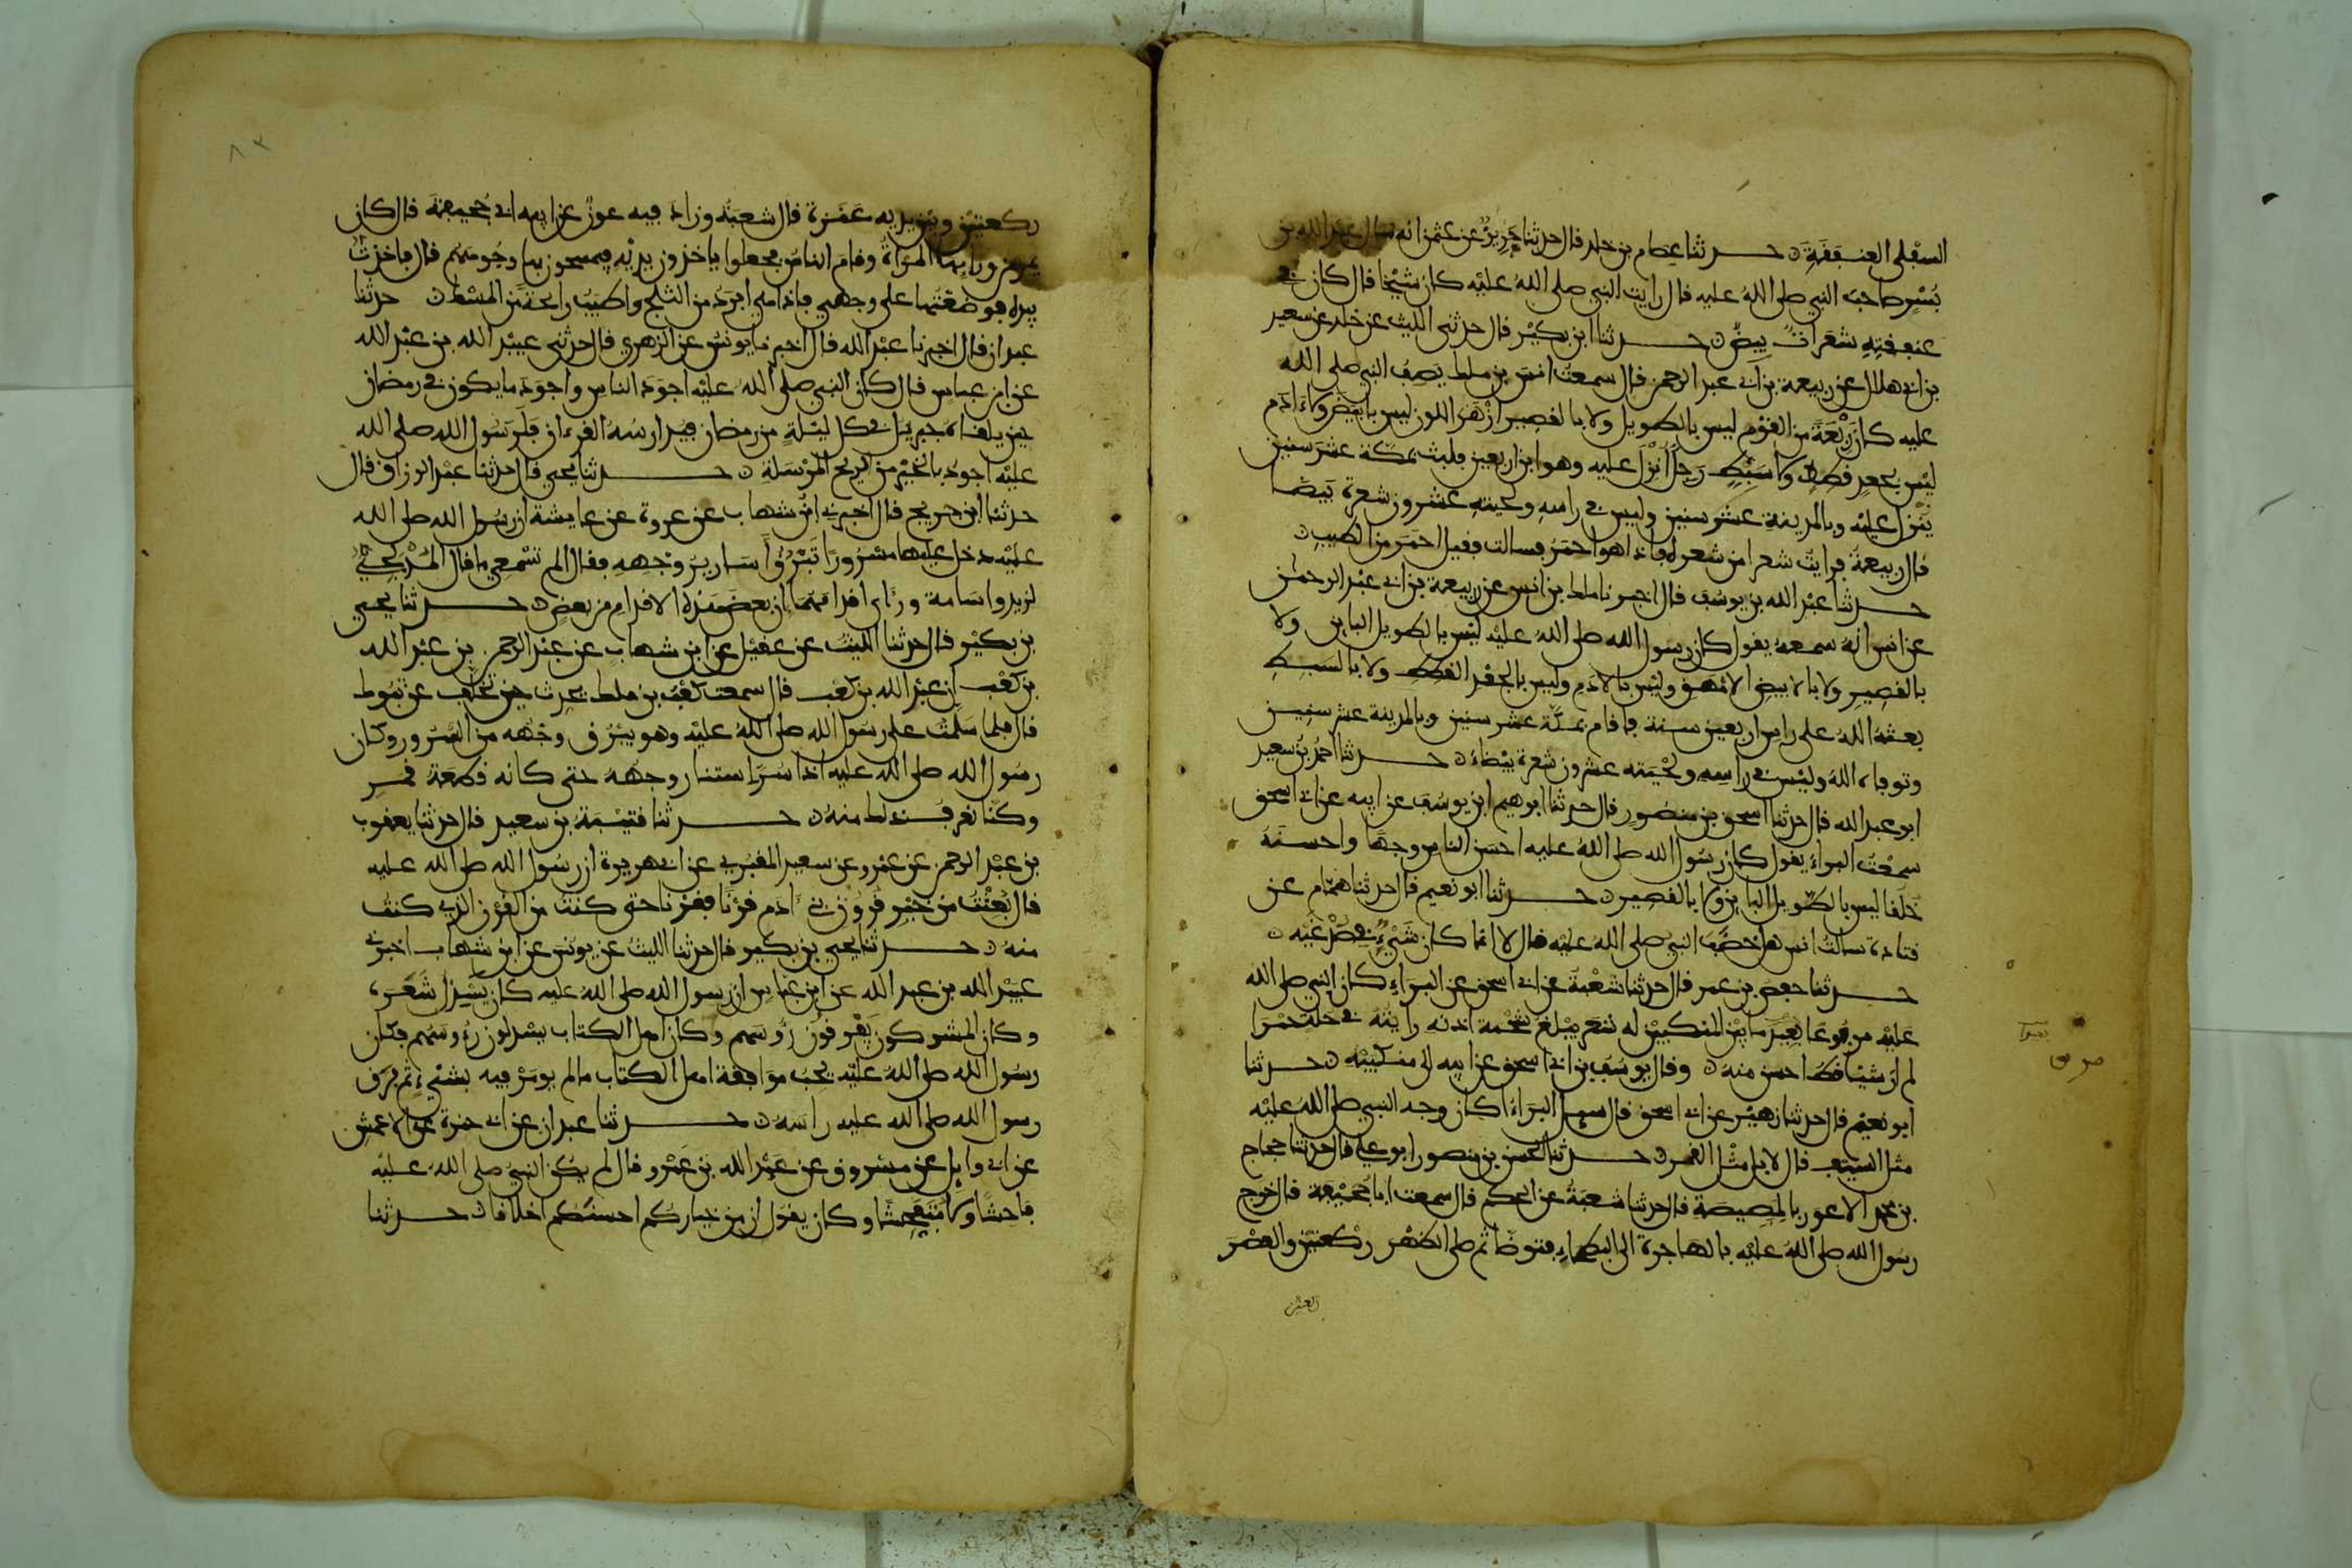 السفلى العنفقة حدثنا عصام بن خلد قال حدثنا حريز بن عثمن انه سال عبد الله بن
بسر صاحب النبي صلى الله عليه قال رايت النبي صلى الله عليه كان شيخا قال كان في
عنفقته شعرات بيض حدثنا ابن بكير قال حدثني الليث عن خلد عن سعيد
بن ابي هلال عن ربيعة بن ابي عبد الرحمن قال سمعت انس بن ملك يصف النبي صلى الله
عليه كان ربعة من القوم ليس بالطويل ولا بالقصير ازهر اللون ليس بابيض ولا ادم
ليس بجعد قطط ولا سبط رجل انزل عليه وهو ابن اربعين فلبث بمكة عشر سنين
ينزل عليه وبالمدينة عشر سنين وليس في راسه ولحيته عشرون شعرة بيضا
قال ربيعة فرايت شعرا من شعره فاذا هو احمر فسالت فقيل احمر من الطيب
حدثنا عبد الله بن يوسف قال اخبرنا ملك بن انس عن ربيعة بن ابي عبد الرحمن
عن انس انه سمعه يقول كان رسول الله صلى الله عليه ليس بالطويل الباين ولا
بالقصير ولا بالابيض الامهق وليس بالادم وليس بالجعد القطط ولا بالسبط
بعثه الله على راس اربعين سنة فاقام بمكة عشر سنين وبالمدينة عشر سنين
وتوفاه الله وليس في راسه ولحيته عشرون شعرة بيضاء حدثنا احمد بن سعيد
ابو عبد الله قال حدثنا اسحق بن منصور قال حدثنا ابرهيم ابن يوسف عن ابيه عن ابي اسحق
سمعت البراء يقول كان رسول الله صلى الله عليه احسن الناس وجها واحسنه
خلقا ليس بالطويل الباين ولا بالقصير حدثنا ابو نعيم قال حدثنا همام عن
قتادة سالت انس هل خضب النبي صلى الله عليه قال لا انما كان شيء في صدغيه
حدثنا حفص بن عمر قال حدثنا شعبة عن ابي اسحق عن البراء كان النبي صلى الله
عليه مربوعا بعيد ما بين المنكبين له شعر يبلغ شحمة اذنه رايته في حلة حمرا
لم ار شيئا قط احسن منه وقال يوسف بن ابي اسحق عن ابيه الى منكبيه حدثنا
ابو نعيم قال حدثنا زهير عن ابي اسحق قال سيل البراء اكان وجه النبي صلى الله عليه
مثل السيف قال لا بل مثل القمر حدثنا الحسن بن منصور ابو علي قال حدثنا حجاج
بن محمد الاعور بالمصيصة قال حدثنا شعبة عن الحكم قال سمعت ابا جحيفة قال خرج
رسول الله صلى الله عليه بالهاجرة الى البطحاء فتوضا ثم صلى الظهر ركعتين والعصر
ركعتين وبين يديه عنزة قال شعبة وزاد فيه عون عن ابيه ابي جحيفة قال كان
يمر من ورايها المراة وقام الناس فجعلوا ياخذون يديه فيمسحون بها وجوههم قال فاخذت
بيده فوضعتها على وجهي فاذا هي ابرد من الثلج واطيب رايحة من المسك حدثنا
عبدان قال اخبرنا عبد الله قال اخبرنا يونس عن الزهري قال حدثني عبيد الله بن عبد الله
عن ابن عباس قال كان النبي صلى الله عليه اجود الناس واجود ما يكون في رمضان
حين يلقاه جبريل في كل ليلة من رمضان فيدارسه القرءان فلرسول الله صلى الله
عليه اجود بالخير من الريح المرسلة حدثنا يحيى قال حدثنا عبد الرزاق قال
حدثنا ابن جريج قال اخبرني ابن شهاب عن عروة عن عايشة ان رسول الله صلى الله
عليه دخل عليها مسرورا تبرق اسارير وجهه فقال الم تسمعي ما قال المدلجي
لزيد واسامة وراى اقدامهما ان بعض هذه الاقدام من بعض حدثنا يحيى
بن بكير قال حدثنا الليث عن عقيل عن ابن شهاب عن عبد الرحمن بن عبد الله
بن كعب ان عبد الله بن كعب قال سمعت كعب بن ملك يحدث حين تخلف عن تبوك
قال فلما سلمت على رسول الله صلى الله عليه وهو يبرق وجهه من السرور وكان
رسول الله صلى الله عليه اذا سر استنار وجهه حتى كانه قطعة قمر
وكنا نعرف ذلك منه حدثنا قتيبة بن سعيد قال حدثنا يعقوب
بن عبد الرحمن عن عمرو عن سعيد المقبري عن ابي هريرة ان رسول الله صلى الله عليه
قال بعثت من خير قرون بني ءادم قرنا فقرنا حتى كنت من القرن الذي كنت
منه حدثنا يحيى بن بكير قال حدثنا الليث عن يونس عن ابن شهاب اخبرني
عبيد الله بن عبد الله عن ابن عباس ان رسول الله صلى الله عليه كان يسدل شعره
وكان المشركون يفرقون رءوسهم وكان اهل الكتاب يسدلون رءوسهم فكان
رسول الله صلى الله عليه يحب موافقة اهل الكتاب ما لم يومر فيه بشيء ثم فرق
رسول الله صلى الله عليه راسه حدثنا عبدان عن ابي حمزة عن الاعمش
عن ابي وايل عن مسروق عن عبد الله بن عمرو قال لم يكن النبي صلى الله عليه
فاحشا ولا متفحشا وكان يقول ان من خياركم احسنكم اخلاقا حدثنا